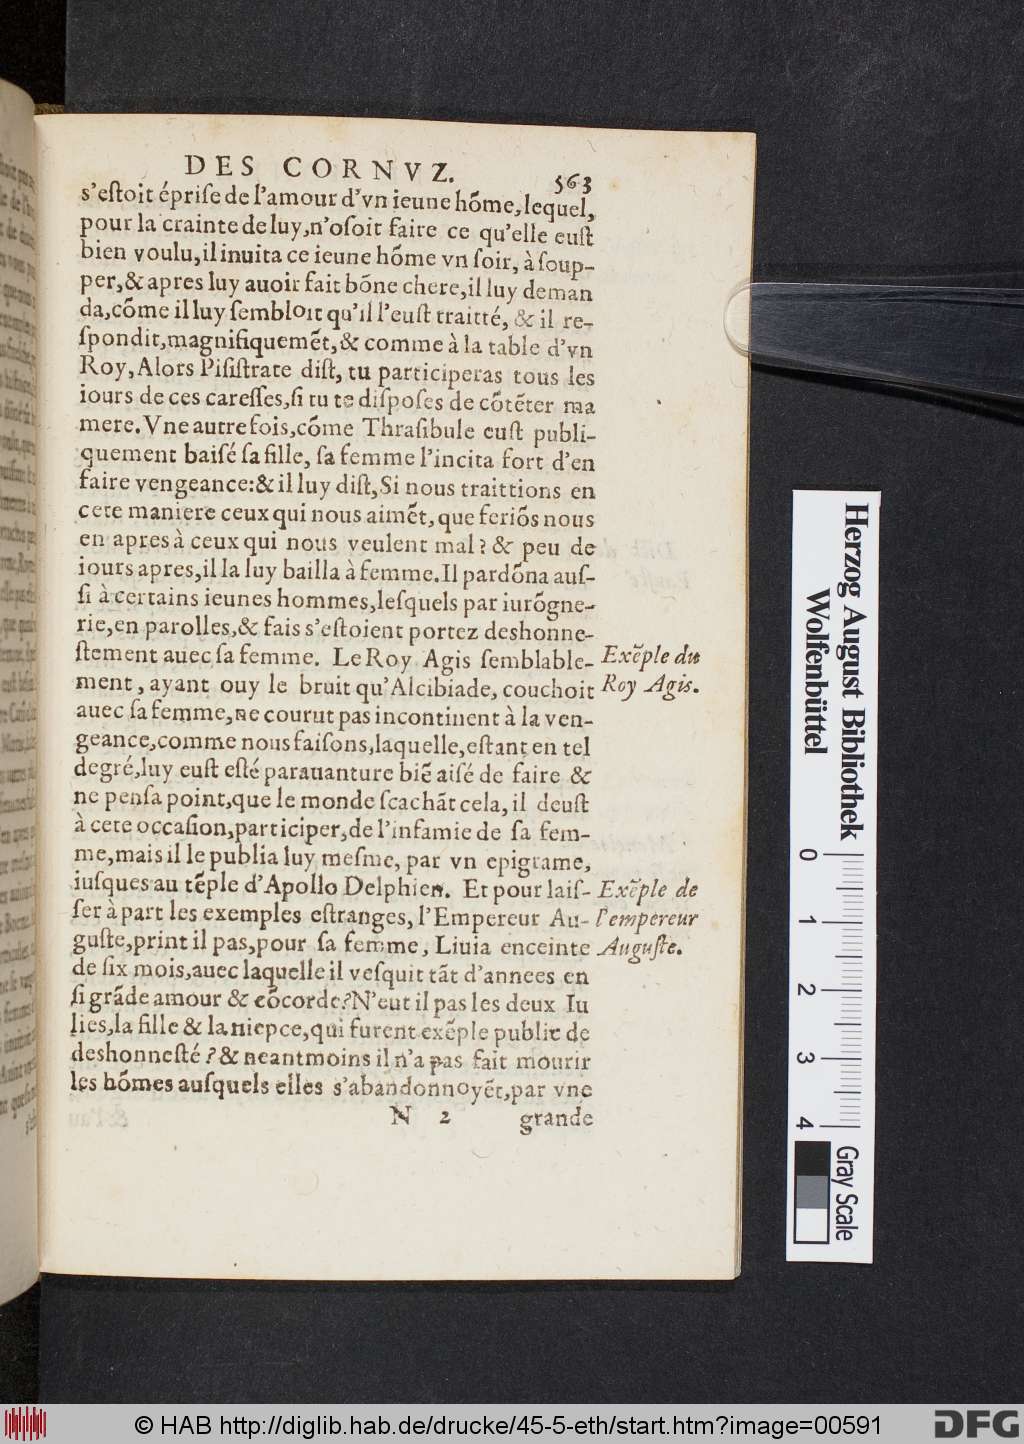 DES CORNVZ.
563
s'eſtoit épriſe de l'amour d'vn ieune hõme, lequel,
pour la crainte de luy, n'oſoit faire ce qu'elle euſt
bien voulu, il inuita ce ieune hõme vn ſoir, à ſoup-
per, & apres luy auoir fait bõne chere, il luy deman
da, cõme il luy ſembloit qu'il l'euſt traitté, & il re-
ſpondit, magnifiquemẽt, & comme à la table d'vn
Roy, Alors Piſiſtrate diſt, tu participeras tous les
iours de ces careſſes, ſi tu te diſpoſes de cõtẽter ma
mere. Vne autre fois, cõme Thraſibule euſt publi-
quement baiſé ſa fille, ſa femme l'incita fort d'en
faire vengeance: & il luy diſt, Si nous traittions en
cete maniere ceux qui nous aimẽt, que feriõs nous
en apres à ceux qui nous veulent mal? & peu de
iours apres, il la luy bailla à femme. Il pardõna auſ-
ſi à certains ieunes hommes, leſquels par iurõgne-
rie, en parolles, & fais s'eſtoient portez deshonne-
ſtement auec ſa femme. Le Roy Agis ſemblable-
ment, ayant ouy le bruit qu'Alcibiade, couchoit
auec ſa femme, ne courut pas incontinent à la ven-
geance, comme nous faiſons, laquelle, eſtant en tel
degré, luy euſt eſté parauanture biẽ aiſé de faire &
ne penſa point, que le monde ſcachãt cela, il deuſt
à cete occaſion, participer, de l'infamie de ſa fem-
me, mais il le publia luy meſme, par vn epigrame,
iuſques au tẽple d'Apollo Delphien. Et pour laiſ-
ſer à part les exemples eſtranges, l'Empereur Au-
guſte, print il pas, pour ſa femme, Liuia enceinte
de ſix mois, auec laquelle il veſquit tãt d'annees en
ſi grãde amour & cõcorde? N'eut il pas les deux Iu
lies, la fille & la niepce, qui furent exẽple public de
deshonneſté? & neantmoins il n'a pas fait mourir
les hõmes auſquels elles s'abandonnoyẽt, par vne
N 2 grande
Exẽple du
Roy Agis.
Exẽple de
l'empereur
Auguſte.
Herzog August Bibliothek
Wolfenbüttel
0 1 2 3 4
Gray Scale
© HAB http://diglib.hab.de/drucke/45-5-eth/start.htm?image=00591
DFG